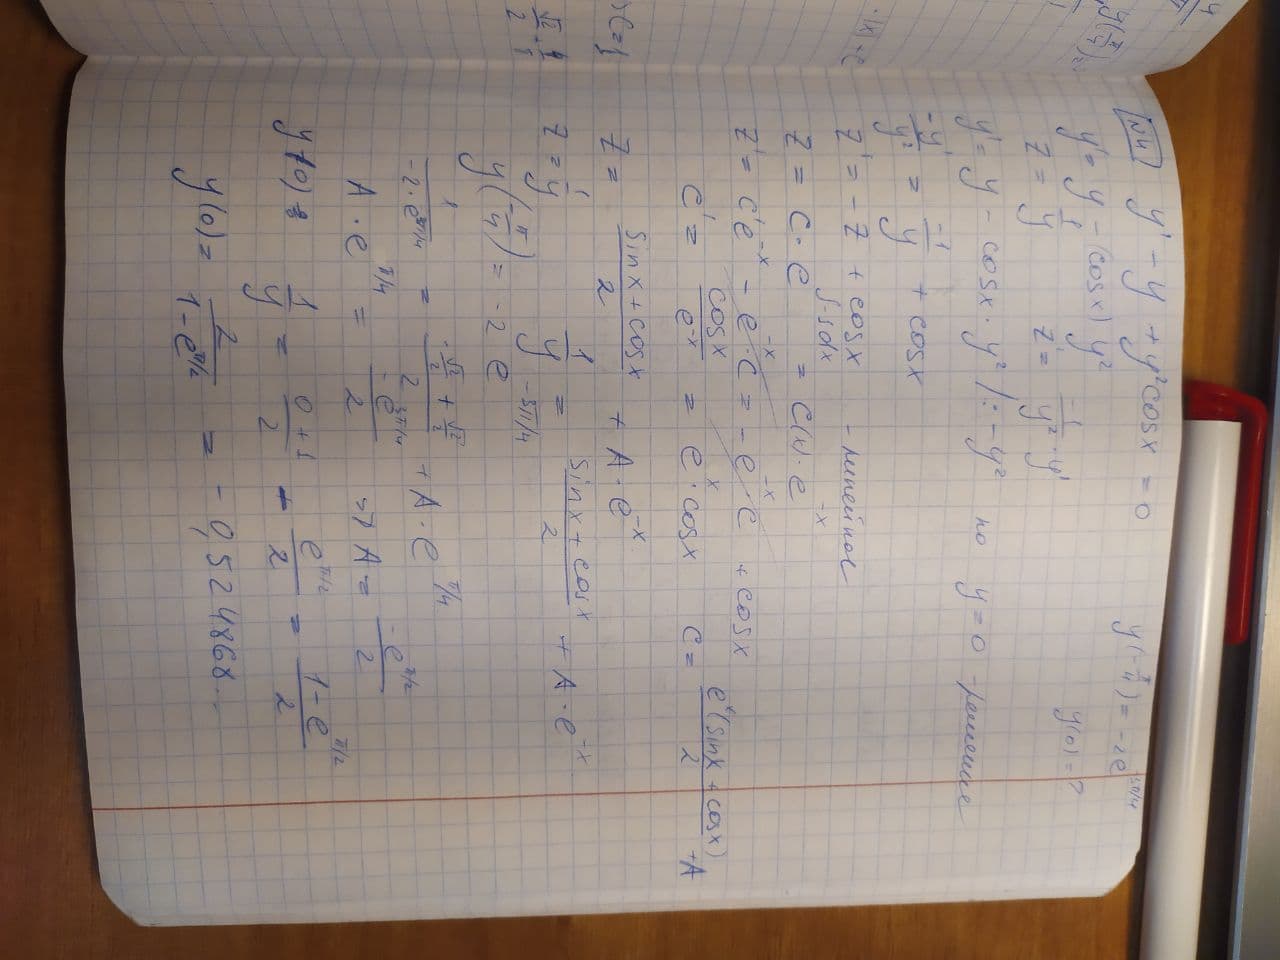 №4 y' - y + y² cosx = 0 y(-π/4) = -2e^(-3π/4)
y' = y - (cosx) y² y(0) = ?
z = 1/y z' = -1/y² · y'
y' = y - cosx · y² /: -y² но y = 0 - решение
-y'/y² = -1/y + cosx
z' = -z + cosx - линейное
z = c · e^(∫-1dx) = c(x) · e^(-x)
z' = c'e^(-x) - e^(-x) · c = -e^(-x) · c + cosx
c' = cosx/e^(-x) = e^x · cosx c = e^x(sinx + cosx)/2 + A
z = (sinx + cosx)/2 + A · e^(-x)
z = 1/y 1/y = (sinx + cosx)/2 + A · e^(-x)
y(-π/4) = -2 e^(-3π/4)
1/(-2 · e^(-3π/4)) = (-√2/2 + √2/2)/2 + A · e^(π/4)
A · e^(π/4) = -e^(3π/4)/2 => A = -e^(π/2)/2
y(0) = 1/y = (0 + 1)/2 - e^(π/2)/2 = (1 - e^(π/2))/2
y(0) = 2/(1 - e^(π/2)) = -0,524868...